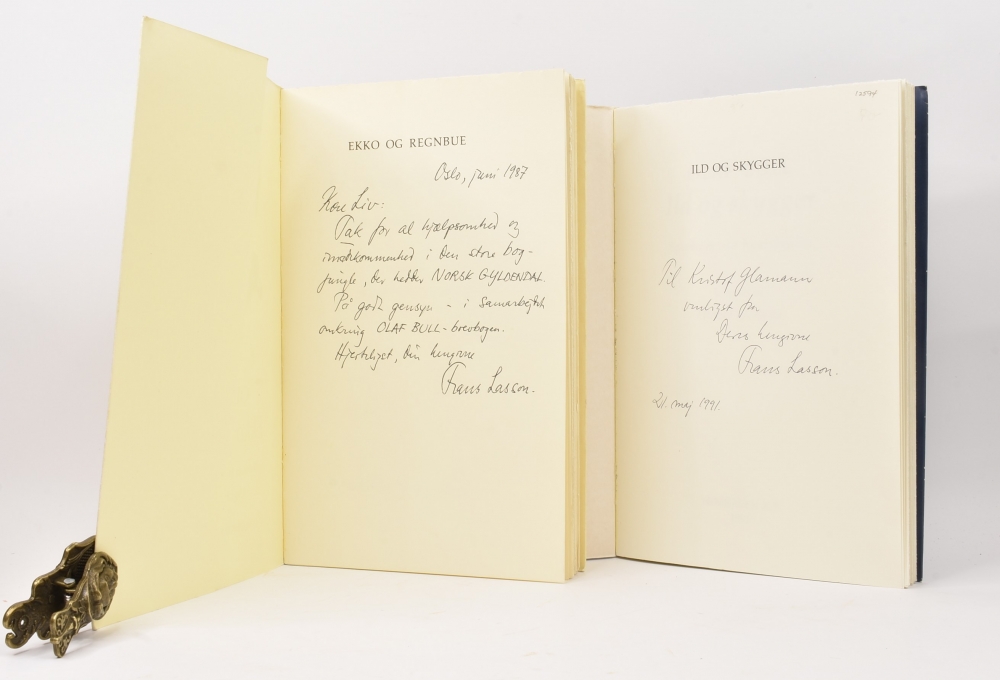 EKKO OG REGNBUE
Oslo, juni 1987
Kære Liv:
Tak for al hjælpsomhed og
imødekommenhed i den store bog-
jungle, der hedder NORSK GYLDENDAL.
På godt gensyn - i samarbejdet
omkring OLAF BULL-brevbogen.
Hjerteligst, din hengivne
Frans Lasson.
ILD OG SKYGGER
Til Kristof Glamann
venligst fra
Deres hengivne
Frans Lasson.
21. maj 1991.